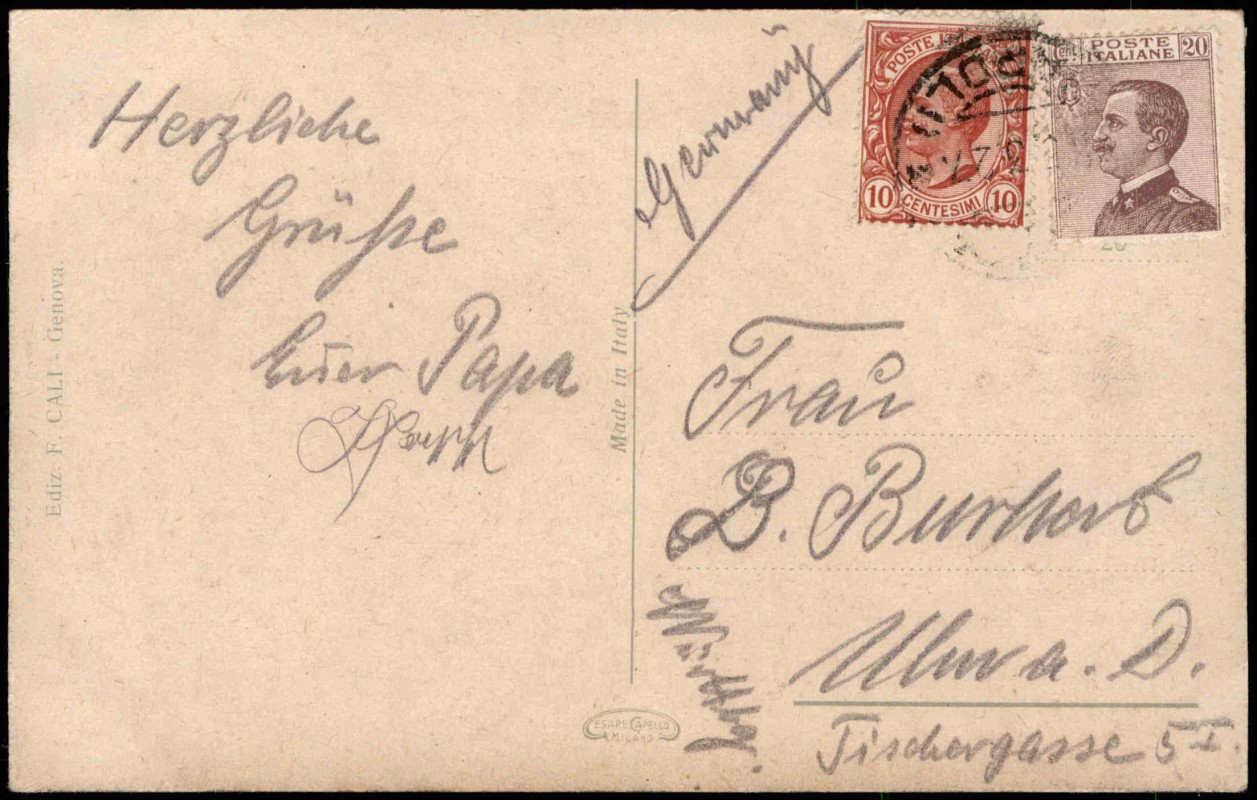 Herzliche
Grüße
Euer Papa
Ediz. F. CALI - Genova.
Made in Italy
CESARE CAPELLO
MILANO
Germany
POSTE
10 CENTESIMI 10
Cent. POSTE 20
ITALIANE
Frau
B.
Ulm a. D.
Fischergasse 5 I.
Württbg.